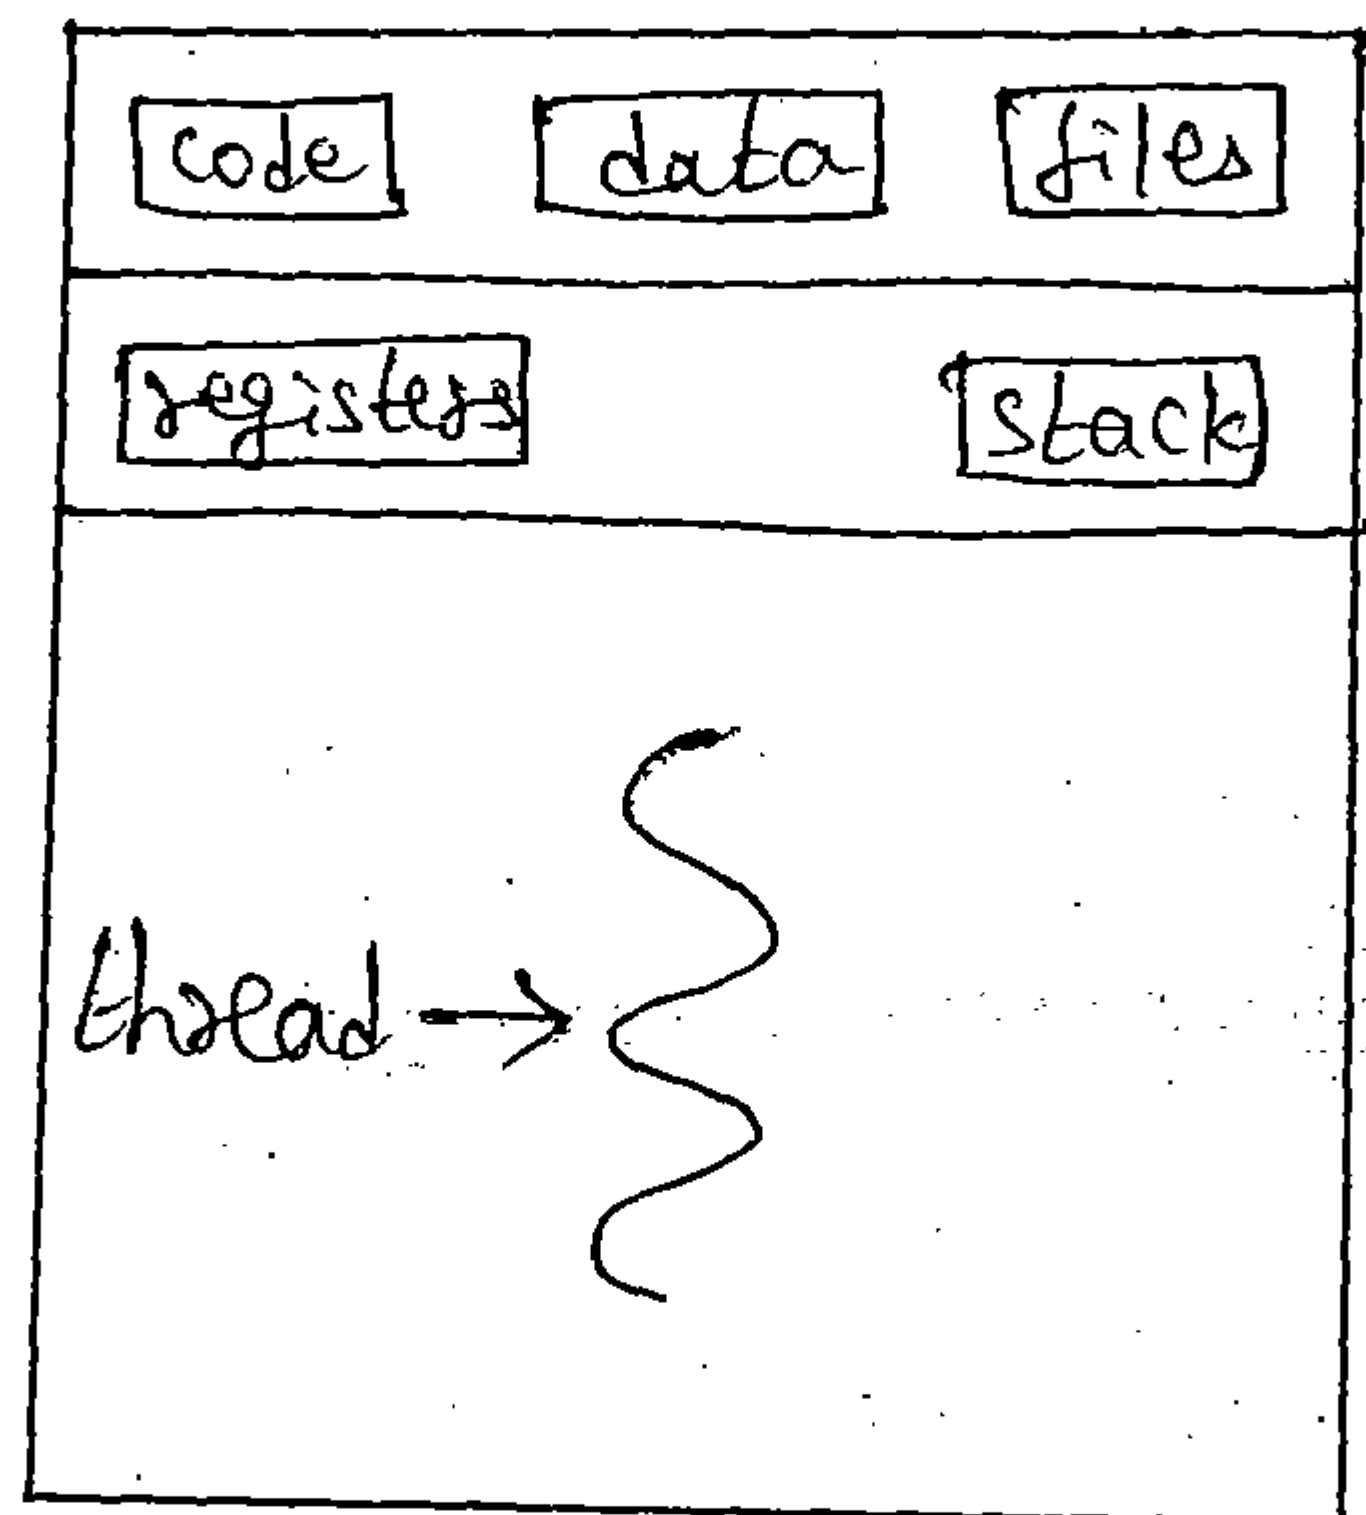 code data files
registers stack
thread